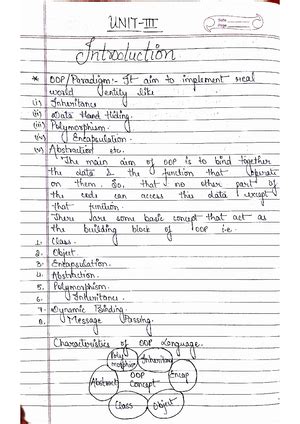 UNIT-III
Date
Page
Introduction
* OOP/Paradigm:- It aim to implement real
world entity like
(i) Inheritance
(ii) Data Hand Hiding.
(iii) Polymorphism.
(iv) Encapsulation.
(v) Abstraction etc.
The main aim of OOP is to bind together
the data & the function that operate
on them. So, that no other part of
the code can access this data except
that function.
There are some basic concept that act as
the building block of OOP i.e.
1. Class.
2. Object.
3. Encapsulation.
4. Abstraction.
5. Polymorphism.
6. Inheritance.
7. Dynamic Binding.
8. Message Passing.
Characteristics of OOP Language.
Poly
morphism Inheritance
Abstract OOP Encap
Concept
Class Object